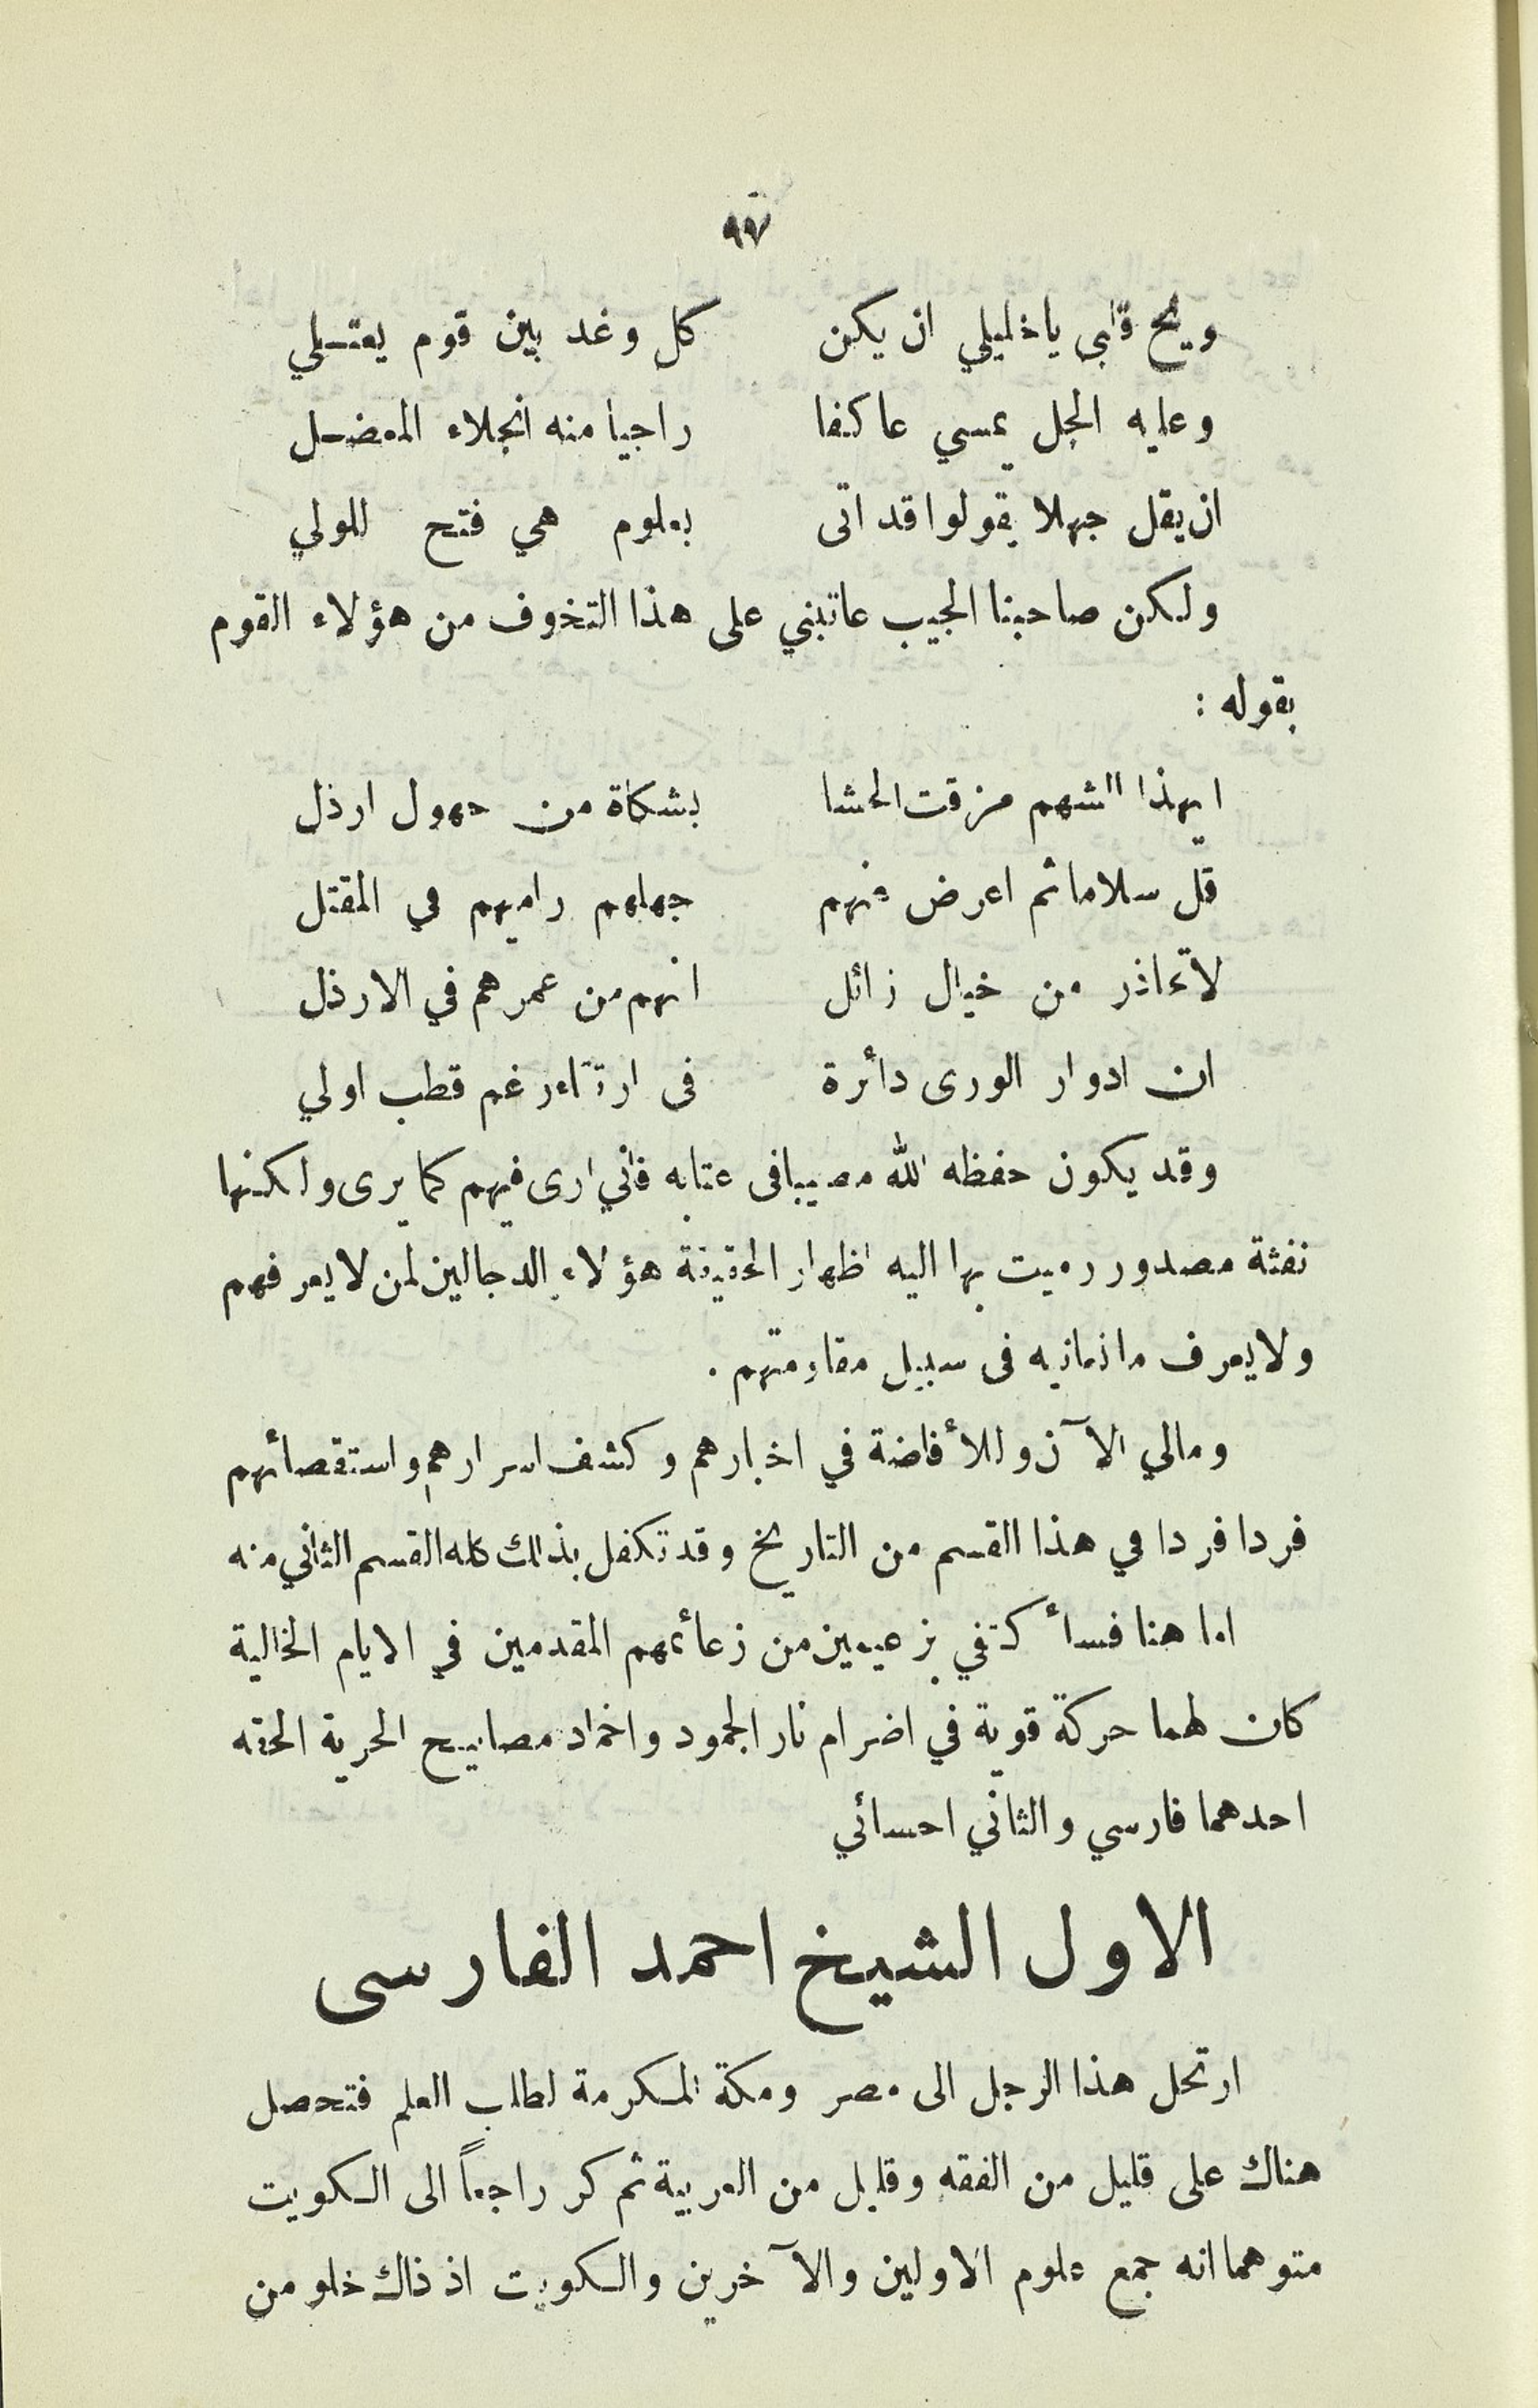 ٩٧
ويح قلبي ياخليلي ان يكن كل وغد بين قوم يعتلي
وعليه الجل يمسي عاكفا راجيا منه انجلاء المعضل
ان يقل جهلا يقولوا قد اتى بعلوم هي فتح للولي
ولكن صاحبنا المجيب عاتبني على هذا التخوف من هؤلاء القوم
بقوله :
ايهذا الشهم مزقت الحشا بشكاة من جهول ارذل
قل سلاما ثم اعرض عنهم جهلهم راميهم في المقتل
لاتحاذر من خيال زائل انهم من عمرهم في الارذل
ان ادوار الورى دأئرة فى ارتقاء رغم قطب اولي
وقد يكون حفظه الله مصيبا فى عتابه فأني ارى فيهم كما يرى ولكنها
نفثة مصدور رميت بها اليه اظهار الحقيقة هؤلاء الدجالين لمن لايعرفهم
ولايعرف مانعانيه فى سبيل مقاومتهم .
ومالي الآن وللأفاضة في اخبارهم وكشف اسرارهم واستقصأئهم
فردا فردا في هذا القسم من التاريخ وقد تكفل بذلك كله القسم الثاني منه
اما هنا فسأكتفي بزعيمين من زعأئمهم المقدمين في الايام الخالية
كان لهما حركة قوية في اضرام نار الجمود واخماد مصابيح الحرية الحقه
احدهما فارسي والثاني احسائي
الاول الشيخ احمد الفارسى
ارتحل هذا الرجل الى مصر ومكة المكرمة لطلب العلم فتحصل
هناك على قليل من الفقه وقليل من العربية ثم كر راجعاً الى الكويت
متوهما انه جمع علوم الاولين والآخرين والكويت اذ ذاك خلو من